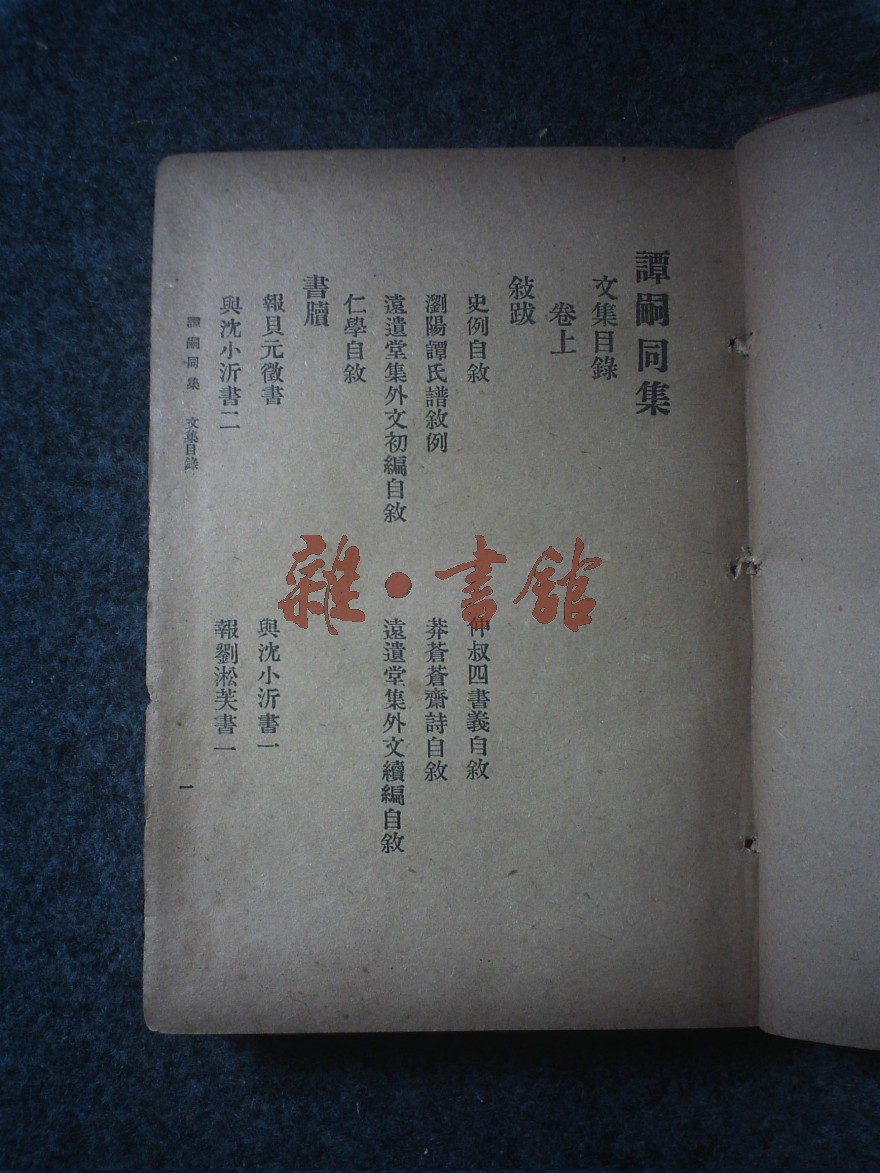 譚嗣同集
文集目錄
卷上
敍跋
史例自敘
仲叔四書義自敘
瀏陽譚氏譜敘例
莽蒼蒼齋詩自敘
遠遺堂集外文初編自敘
遠遺堂集外文續編自敘
仁學自敘
書牘
報貝元徵書
與沈小沂書一
與沈小沂書二
報劉淞芙書一
譚嗣同集 文集目錄
一
雜·書館